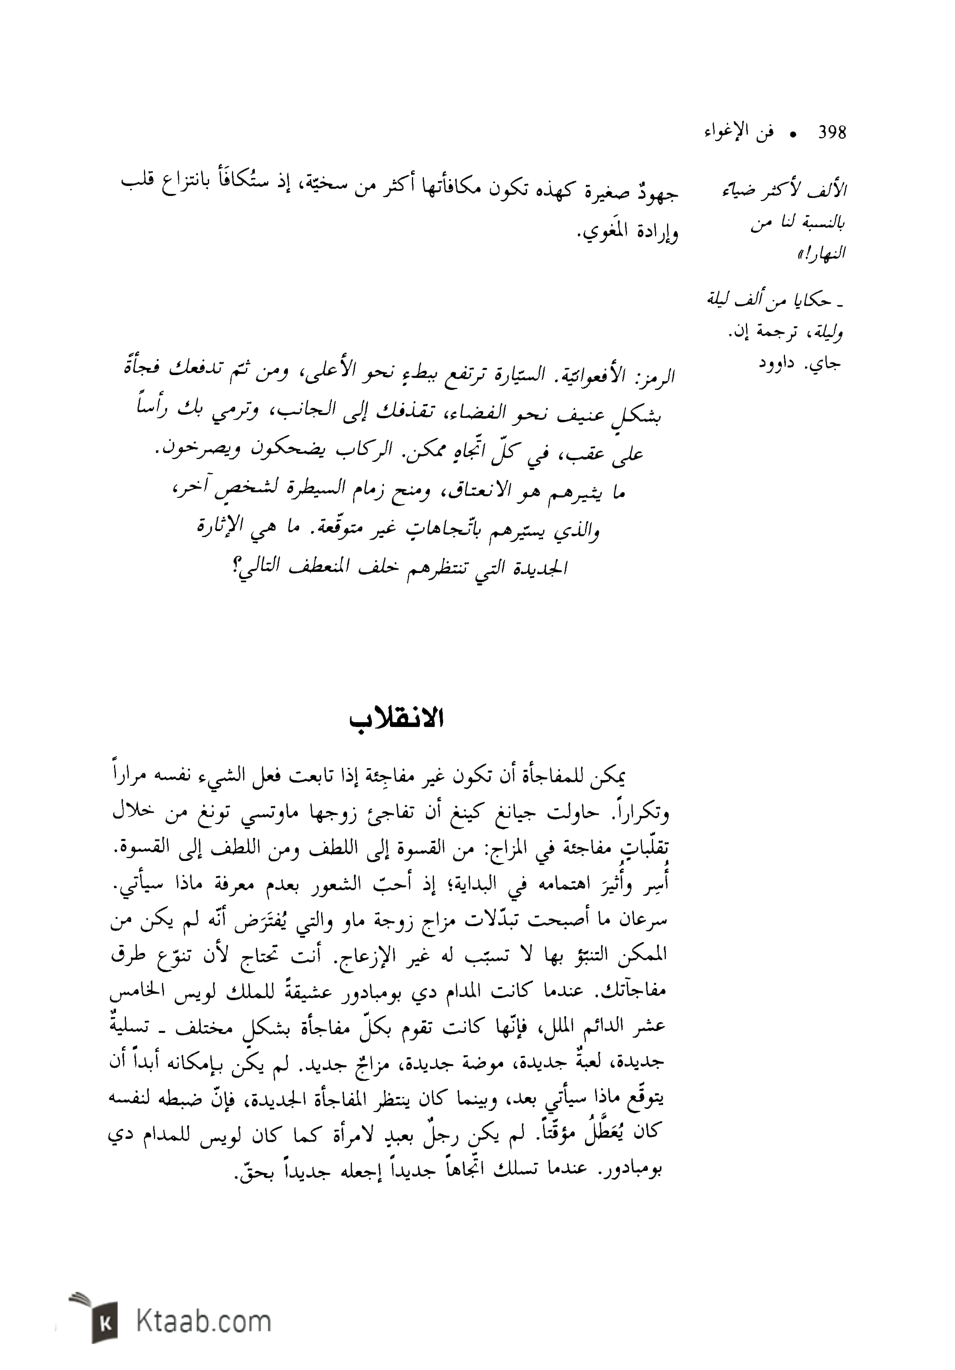 398 • فن الإغواء
الألف لأكثر ضياءً
بالنسبة لنا من
النهار!»
ـ حكايا من ألف ليلة
وليلة، ترجمة إن.
جاي. داوود
جهودٌ صغيرة كهذه تكون مكافأتها أكثر من سخيّة، إذ ستُكافَأ بانتزاع قلب
وإرادة المَغوي.
الرمز: الأفعوانيّة. السيّارة ترتفع ببطءٍ نحو الأعلى، ومن ثمّ تدفعك فجأةً
بشكلٍ عنيف نحو الفضاء، تقذفك إلى الجانب، وترمي بك رأساً
على عقب، في كلّ اتّجاهٍ ممكن. الركاب يضحكون ويصرخون.
ما يثيرهم هو الانعتاق، ومنح زمام السيطرة لشخصٍ آخر،
والذي يسيّرهم باتّجاهاتٍ غير متوقّعة. ما هي الإثارة
الجديدة التي تنتظرهم خلف المنعطف التالي؟
الانقلاب
يمكن للمفاجأة أن تكون غير مفاجِئة إذا تابعت فعل الشيء نفسه مراراً
وتكراراً. حاولت جيانغ كينغ أن تفاجئ زوجها ماوتسي تونغ من خلال
تقلّباتٍ مفاجئة في المزاج: من القسوة إلى اللطف ومن اللطف إلى القسوة.
أُسِر وأُثيرَ اهتمامه في البداية؛ إذ أحبّ الشعور بعدم معرفة ماذا سيأتي.
سرعان ما أصبحت تبدّلات مزاج زوجة ماو والتي يُفتَرَض أنّه لم يكن من
الممكن التنبّؤ بها لا تسبّب له غير الإزعاج. أنت تحتاج لأن تنوّع طرق
مفاجآتك. عندما كانت المدام دي بومبادور عشيقةً للملك لويس الخامس
عشر الدائم الملل، فإنّها كانت تقوم بكلّ مفاجأة بشكلٍ مختلف ـ تسليةٌ
جديدة، لعبةٌ جديدة، موضة جديدة، مزاجٌ جديد. لم يكن بإمكانه أبداً أن
يتوقّع ماذا سيأتي بعد، وبينما كان ينتظر المفاجأة الجديدة، فإنّ ضبطه لنفسه
كان يُعَطَّلُ مؤقّتاً. لم يكن رجلٌ بعبدٍ لامرأة كما كان لويس للمدام دي
بومبادور. عندما تسلك اتّجاهاً جديداً إجعله جديداً بحقّ.
Ktaab.com